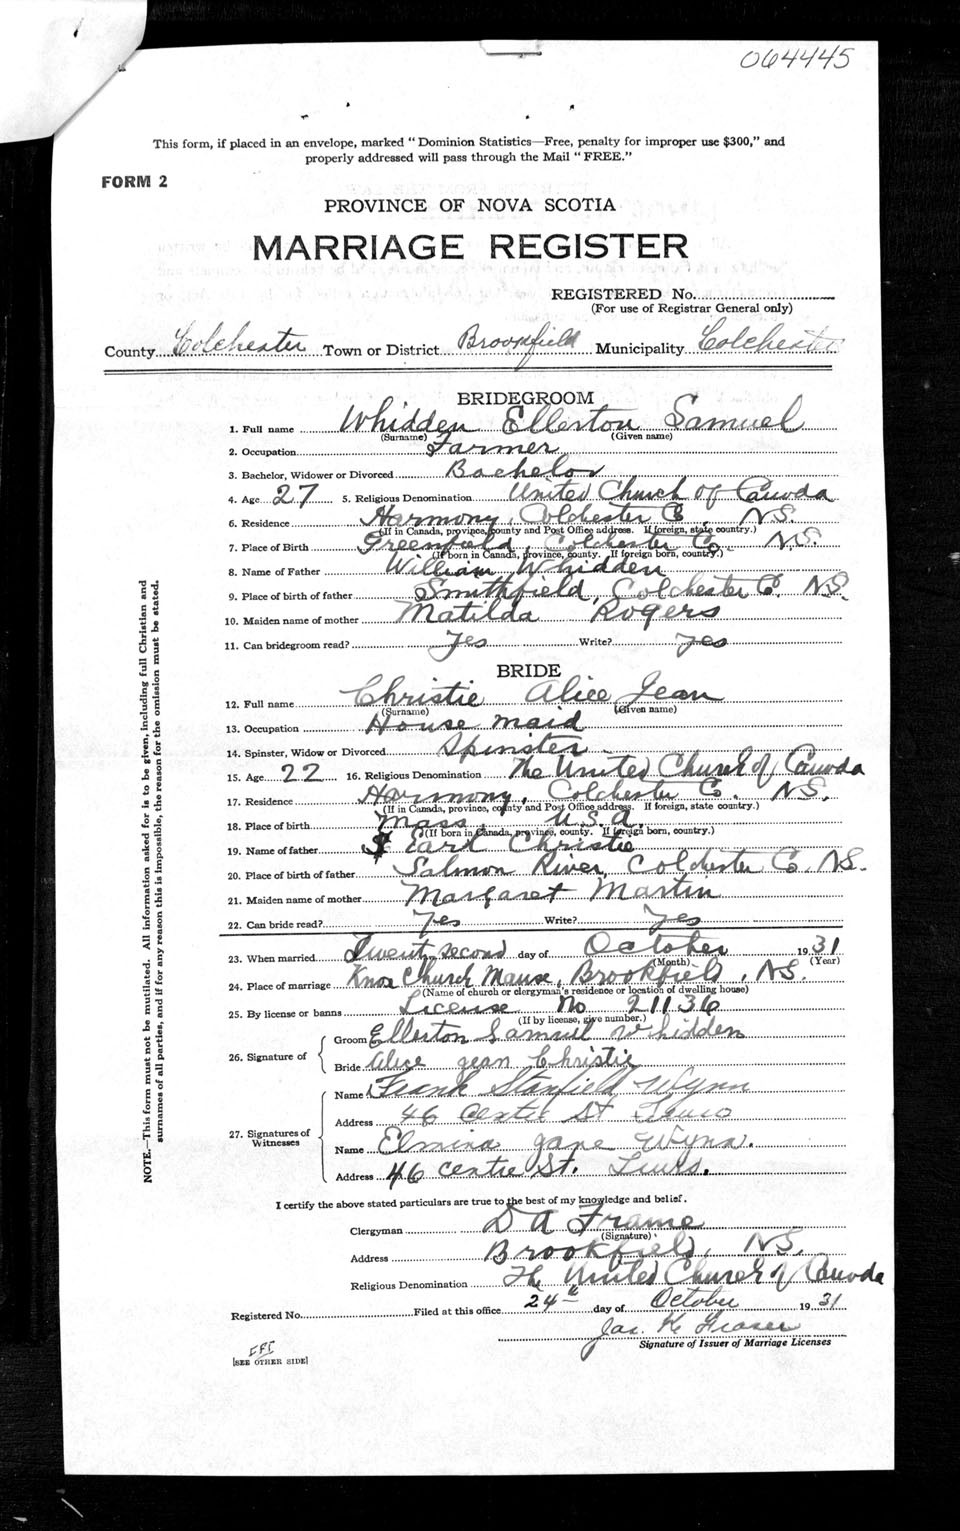 064445
This form, if placed in an envelope, marked "Dominion Statistics—Free, penalty for improper use $300," and
properly addressed will pass through the Mail "FREE."
FORM 2
PROVINCE OF NOVA SCOTIA
MARRIAGE REGISTER
REGISTERED No.
(For use of Registrar General only)
County Colchester Town or District Brookfield Municipality Colchester
BRIDEGROOM
1. Full name Whidden Ellerton Samuel
(Surname) (Given name)
2. Occupation Farmer
3. Bachelor, Widower or Divorced Bachelor
4. Age 27 5. Religious Denomination United Church of Canada
6. Residence Harmony, Colchester Co, N.S.
(If in Canada, province, county and Post Office address. If foreign, state country.)
7. Place of Birth Greenfield, Colchester Co. N.S.
(If born in Canada, province, county. If foreign born, country.)
8. Name of Father William Whidden
9. Place of birth of father Smithfield, Colchester Co. N.S.
10. Maiden name of mother Matilda Rogers
11. Can bridegroom read? Yes Write? Yes
BRIDE
12. Full name Christie Alice Jean
(Surname) (Given name)
13. Occupation House maid
14. Spinster, Widow or Divorced Spinster
15. Age 22 16. Religious Denomination The United Church of Canada
17. Residence Harmony, Colchester Co. N.S.
(If in Canada, province, county and Post Office address. If foreign, state country.)
18. Place of birth Mass. U.S.A.
(If born in Canada, province, county. If foreign born, country.)
19. Name of father Earl Christie
20. Place of birth of father Salmon River, Colchester Co. N.S.
21. Maiden name of mother Margaret Martin
22. Can bride read? Yes Write? Yes
23. When married Twenty second day of October 1931
(Month) (Year)
24. Place of marriage Knox Church Manse, Brookfield, N.S.
(Name of church or clergyman's residence or location of dwelling house)
25. By license or banns License No 21136
(If by license, give number.)
26. Signature of
Groom Ellerton Samuel Whidden
Bride Alice Jean Christie
27. Signatures of Witnesses
Name Frank Stanfield Wynn
Address 46 Centre St Truro
Name Elmina Jane Wynn.
Address 46 Centre St. Truro.
I certify the above stated particulars are true to the best of my knowledge and belief.
Clergyman D A Frame
(Signature)
Address Brookfield, N.S.
Religious Denomination The United Church of Canada
Registered No. Filed at this office 24th day of October 1931
Jas. K. Fraser
Signature of Issuer of Marriage Licenses
[SEE OTHER SIDE]
NOTE.—This form must not be mutilated. All information asked for is to be given, including full Christian and
surnames of all parties, and if for any reason this is impossible, the reason for the omission must be stated.